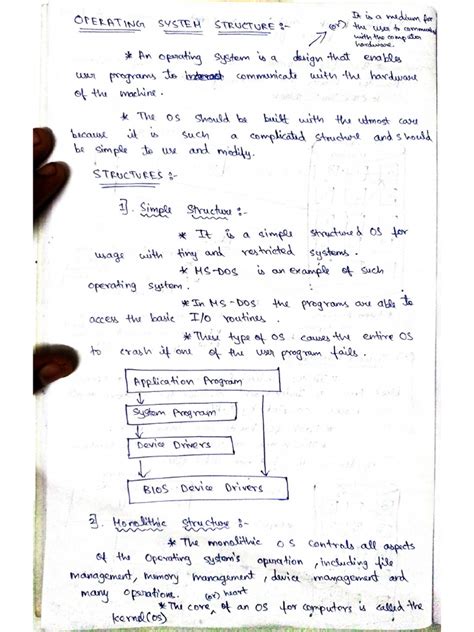 OPERATING SYSTEM STRUCTURE :-
(or) It is a medium for
the user to
with the computer
hardware.
* An operating system is a design that enables
user programs to communicate with the hardware
of the machine.
* The OS should be built with the utmost care
because it is such a complicated structure and should
be simple to use and modify.
STRUCTURES :-
1]. Simple Structure :-
* It is a simple structured OS for
usage with tiny and restricted systems.
* MS-DOS is an example of such
operating system.
* In MS-DOS the programs are able to
access the basic I/O routines.
* These type of OS causes the entire OS
to crash if one of the user program fails.
Application Program
System Program
Device Drivers
BIOS Device Drivers
2]. Monolithic Structure :-
* The monolithic OS controls all aspects
of the Operating system's operation, including file
management, memory management, device management and
many operations.
(or) heart
* The core of an OS for computers is called the
kernel(OS)